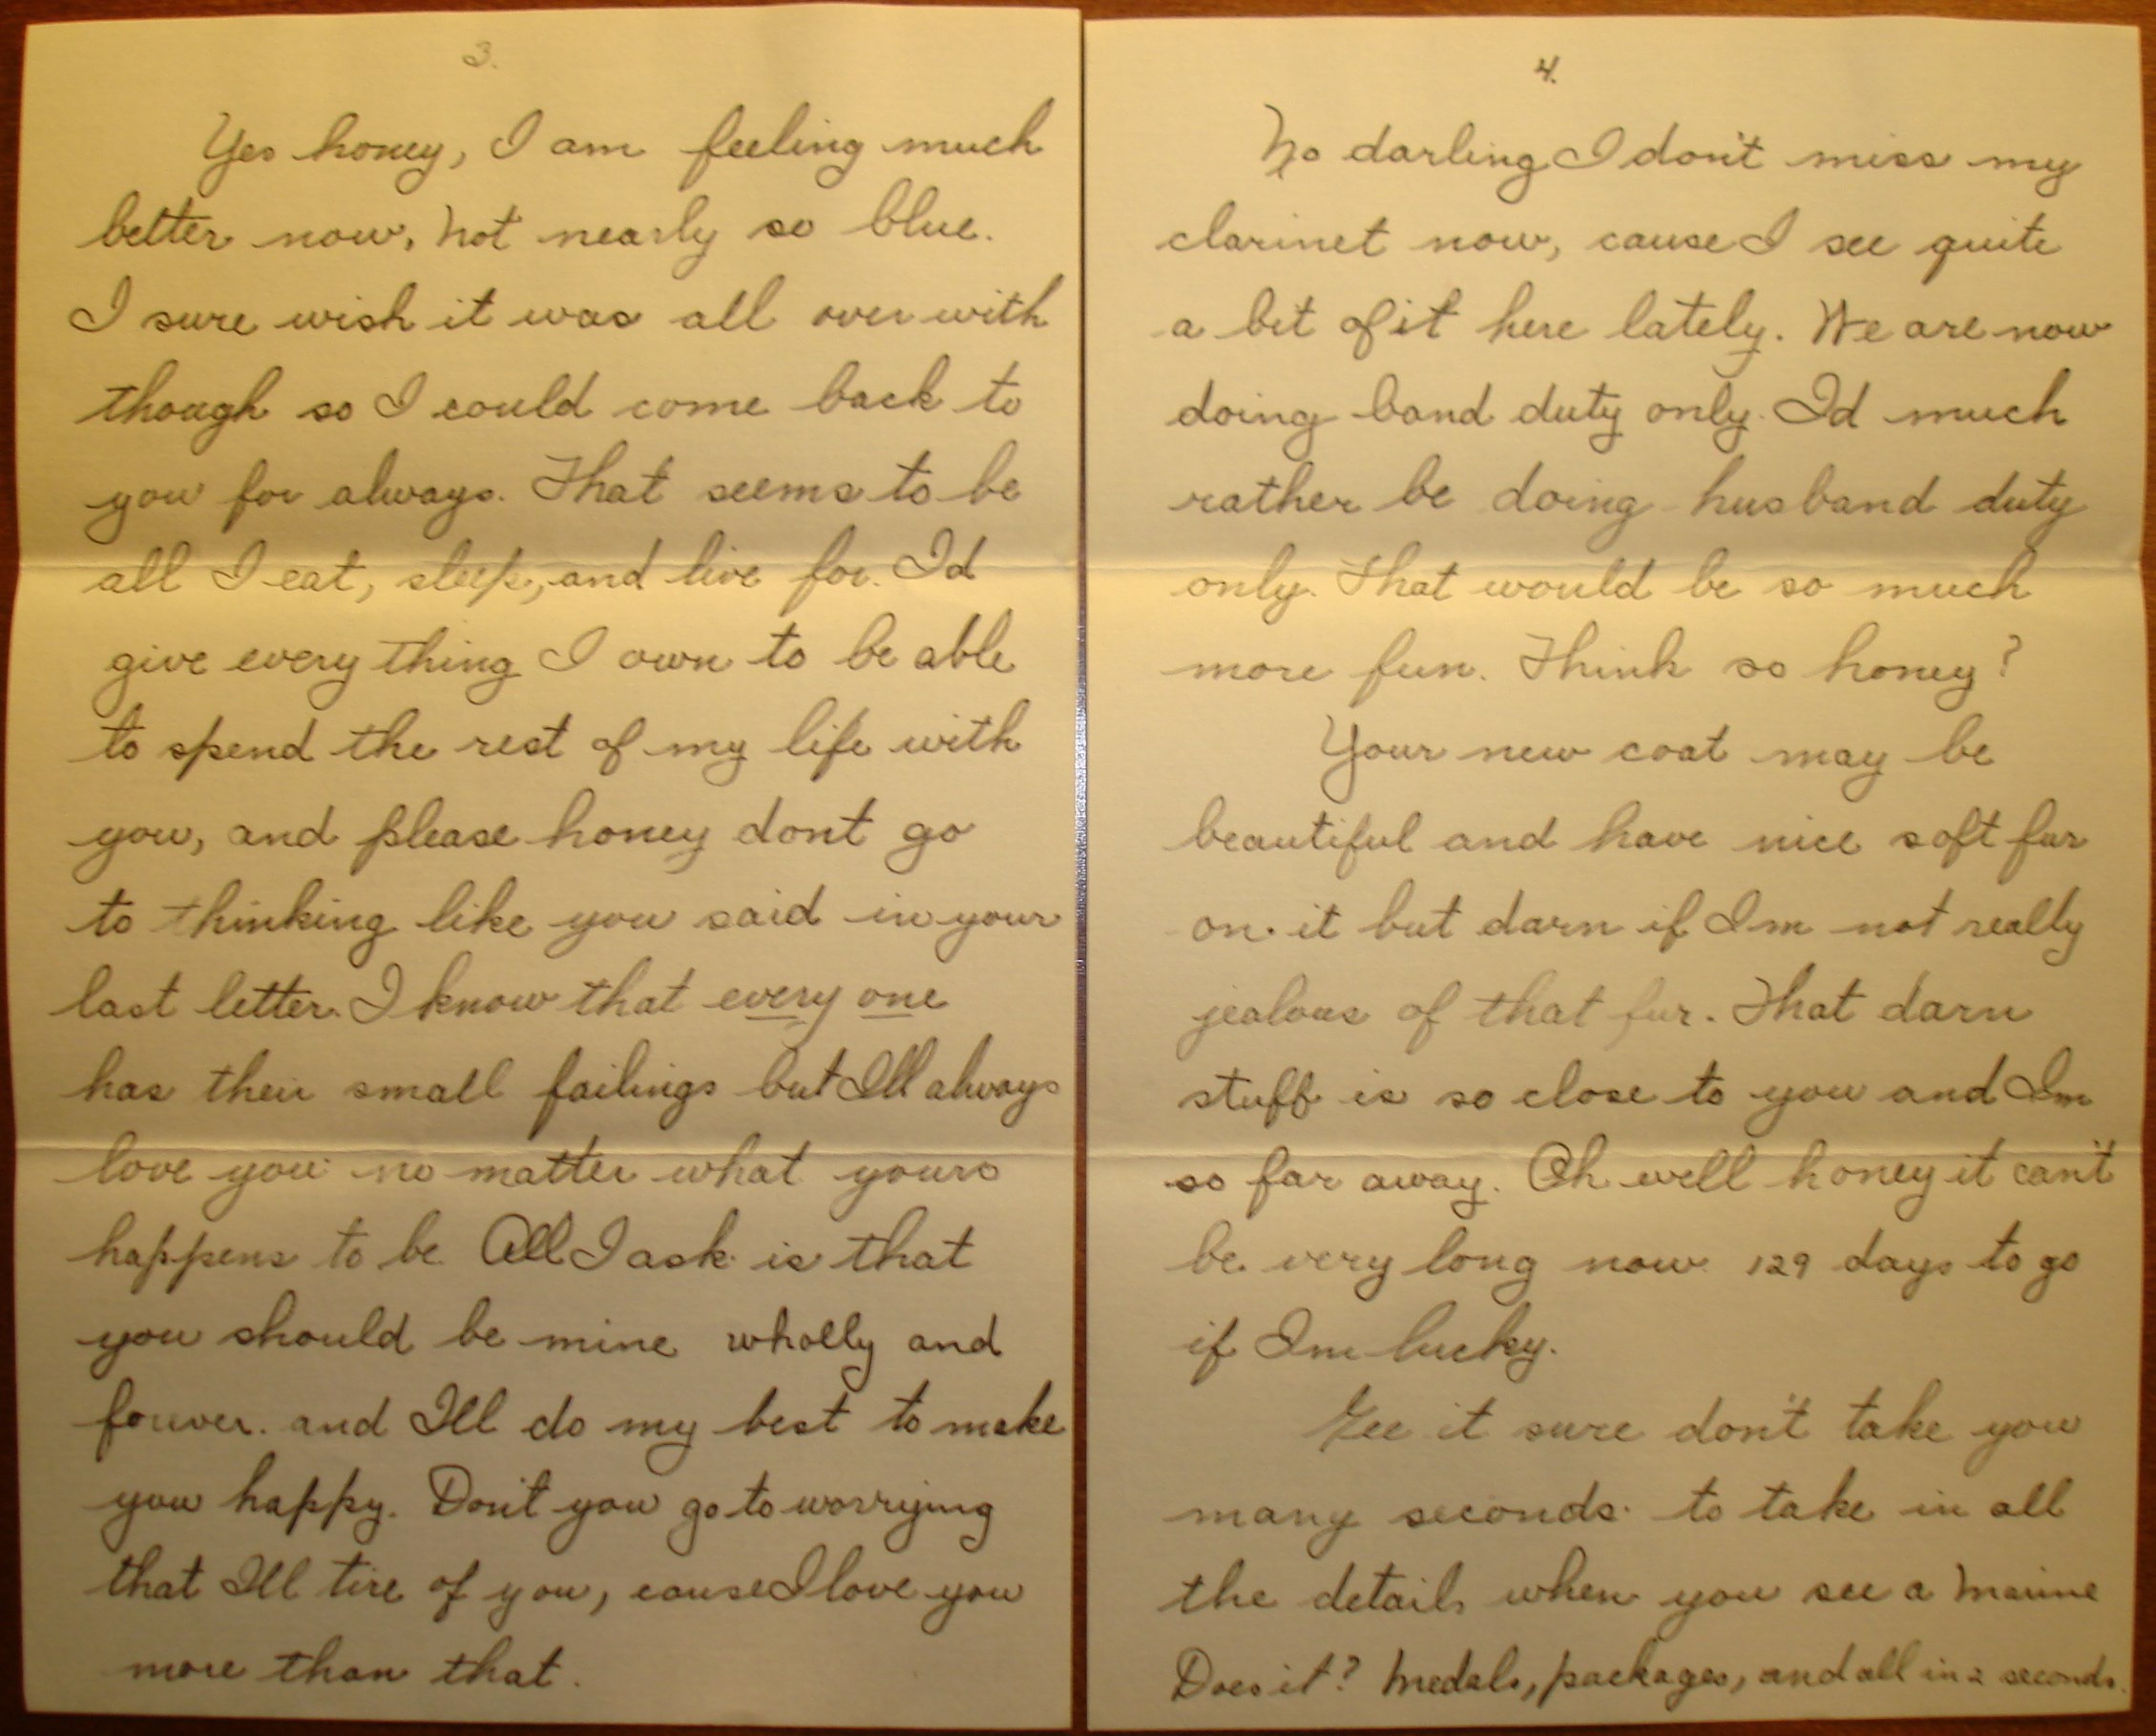 3.
Yes honey, I am feeling much
better now, not nearly so blue.
I sure wish it was all over with
though so I could come back to
you for always. That seems to be
all I eat, sleep, and live for. Id
give every thing I own to be able
to spend the rest of my life with
you, and please honey dont go
to thinking like you said in your
last letter. I know that every one
has their small failings but Ill always
love you no matter what yours
happens to be. All I ask is that
you should be mine wholly and
forever. and Ill do my best to make
you happy. Don't you go to worrying
that Ill tire of you, cause I love you
more than that.
4.
No darling I don't miss my
clarinet now, cause I see quite
a bit of it here lately. We are now
doing band duty only. Id much
rather be doing husband duty
only. That would be so much
more fun. Think so honey?
Your new coat may be
beautiful and have nice soft fur
on it but darn if Im not really
jealous of that fur. That darn
stuff is so close to you and Im
so far away. Oh well honey it can't
be very long now 129 days to go
if Im lucky.
Gee it sure don't take you
many seconds to take in all
the details when you see a Marine
Does it? Medals, packages, and all in 2 seconds.